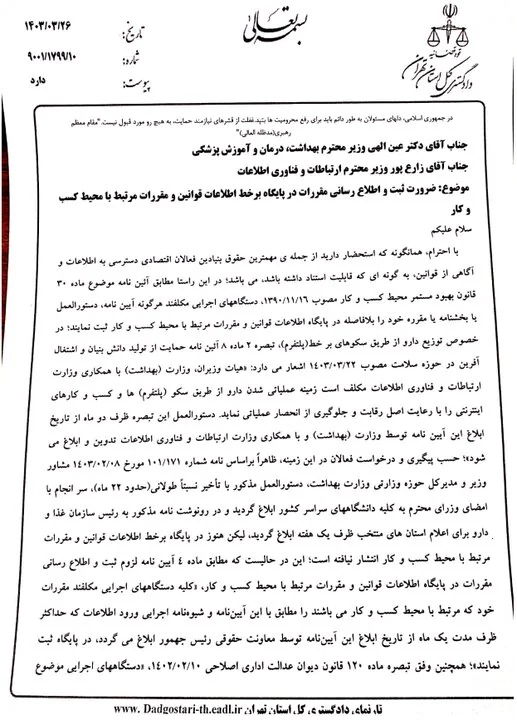 بسمه تعالی
قوه قضائیه
دادگستری کل استان تهران
تاریخ: ۱۴۰۳/۰۳/۲۶
شماره: ۹۰۰۱/۱۷۹۹/۱۰
پیوست: دارد
در جمهوری اسلامی، دلهای مسئولان به طور دائم باید برای رفع محرومیت ها بتپد.غفلت از قشرهای نیازمند حمایت، به هیچ رو مورد قبول نیست."مقام معظم
رهبری(مدظله العالی)"
جناب آقای دکتر عین الهی وزیر محترم بهداشت، درمان و آموزش پزشکی
جناب آقای زارع پور وزیر محترم ارتباطات و فناوری اطلاعات
موضوع: ضرورت ثبت و اطلاع رسانی مقررات در پایگاه برخط اطلاعات قوانین و مقررات مرتبط با محیط کسب
و کار
سلام علیکم
با احترام، همانگونه که استحضار دارید از جمله ی مهمترین حقوق بنیادین فعالان اقتصادی دسترسی به اطلاعات و
آگاهی از قوانین، به گونه ای که قابلیت استناد داشته باشد، می باشد؛ در این راستا مطابق آئین نامه موضوع ماده ۳۰
قانون بهبود مستمر محیط کسب و کار مصوب ۱۳۹۰/۱۱/۱۶، دستگاههای اجرایی مکلفند هرگونه آیین نامه، دستورالعمل
یا بخشنامه یا مقرره خود را بلافاصله در پایگاه اطلاعات قوانین و مقررات مرتبط با محیط کسب و کار ثبت نمایند؛ در
خصوص توزیع دارو از طریق سکوهای بر خط(پلتفرم)، تبصره ۲ ماده ۸ آئین نامه حمایت از تولید دانش بنیان و اشتغال
آفرین در حوزه سلامت مصوب ۱۴۰۳/۰۳/۲۲ اشعار می دارد: «هیات وزیران، وزارت (بهداشت) با همکاری وزارت
ارتباطات و فناوری اطلاعات مکلف است زمینه عملیاتی شدن دارو از طریق سکو (پلتفرم) ها و کسب و کارهای
اینترنتی را با رعایت اصل رقابت و جلوگیری از انحصار عملیاتی نماید. دستورالعمل این تبصره ظرف دو ماه از تاریخ
ابلاغ این آیین نامه توسط وزارت (بهداشت) و با همکاری وزارت ارتباطات و فناوری اطلاعات تدوین و ابلاغ می
شود»؛ حسب پیگیری و درخواست فعالان در این زمینه، ظاهراً براساس نامه شماره ۱۰۱/۱۷۱ مورخ ۱۴۰۳/۰۲/۰۸ مشاور
وزیر و مدیرکل حوزه وزارتی وزارت بهداشت، دستورالعمل مذکور با تأخیر نسبتاً طولانی(حدود ۲۲ ماه)، سر انجام با
امضای وزرای محترم به کلیه دانشگاههای سراسر کشور ابلاغ گردید و در رونوشت نامه مذکور به رئیس سازمان غذا و
دارو برای اعلام استان های منتخب ظرف یک هفته ابلاغ گردید، لیکن هنوز در پایگاه برخط اطلاعات قوانین و مقررات
مرتبط با محیط کسب و کار انتشار نیافته است؛ این در حالیست که مطابق ماده ۴ آیین نامه لزوم ثبت و اطلاع رسانی
مقررات در پایگاه اطلاعات قوانین و مقررات مرتبط با محیط کسب و کار، «کلیه دستگاههای اجرایی مکلفند مقررات
خود که مرتبط با محیط کسب و کار می باشند را مطابق با این آیین‌نامه و شیوه‌نامه اجرایی ورود اطلاعات که حداکثر
ظرف مدت یک ماه از تاریخ ابلاغ این آیین‌نامه توسط معاونت حقوقی رئیس جهمور ابلاغ می گردد، در پایگاه ثبت
نمایند»؛ همچنین وفق تبصره ماده ۱۲۰ قانون دیوان عدالت اداری اصلاحی ۱۴۰۲/۰۲/۱۰، «دستگاههای اجرایی موضوع
تارنمای دادگستری کل استان تهران www. Dadgostari-th.eadl.ir